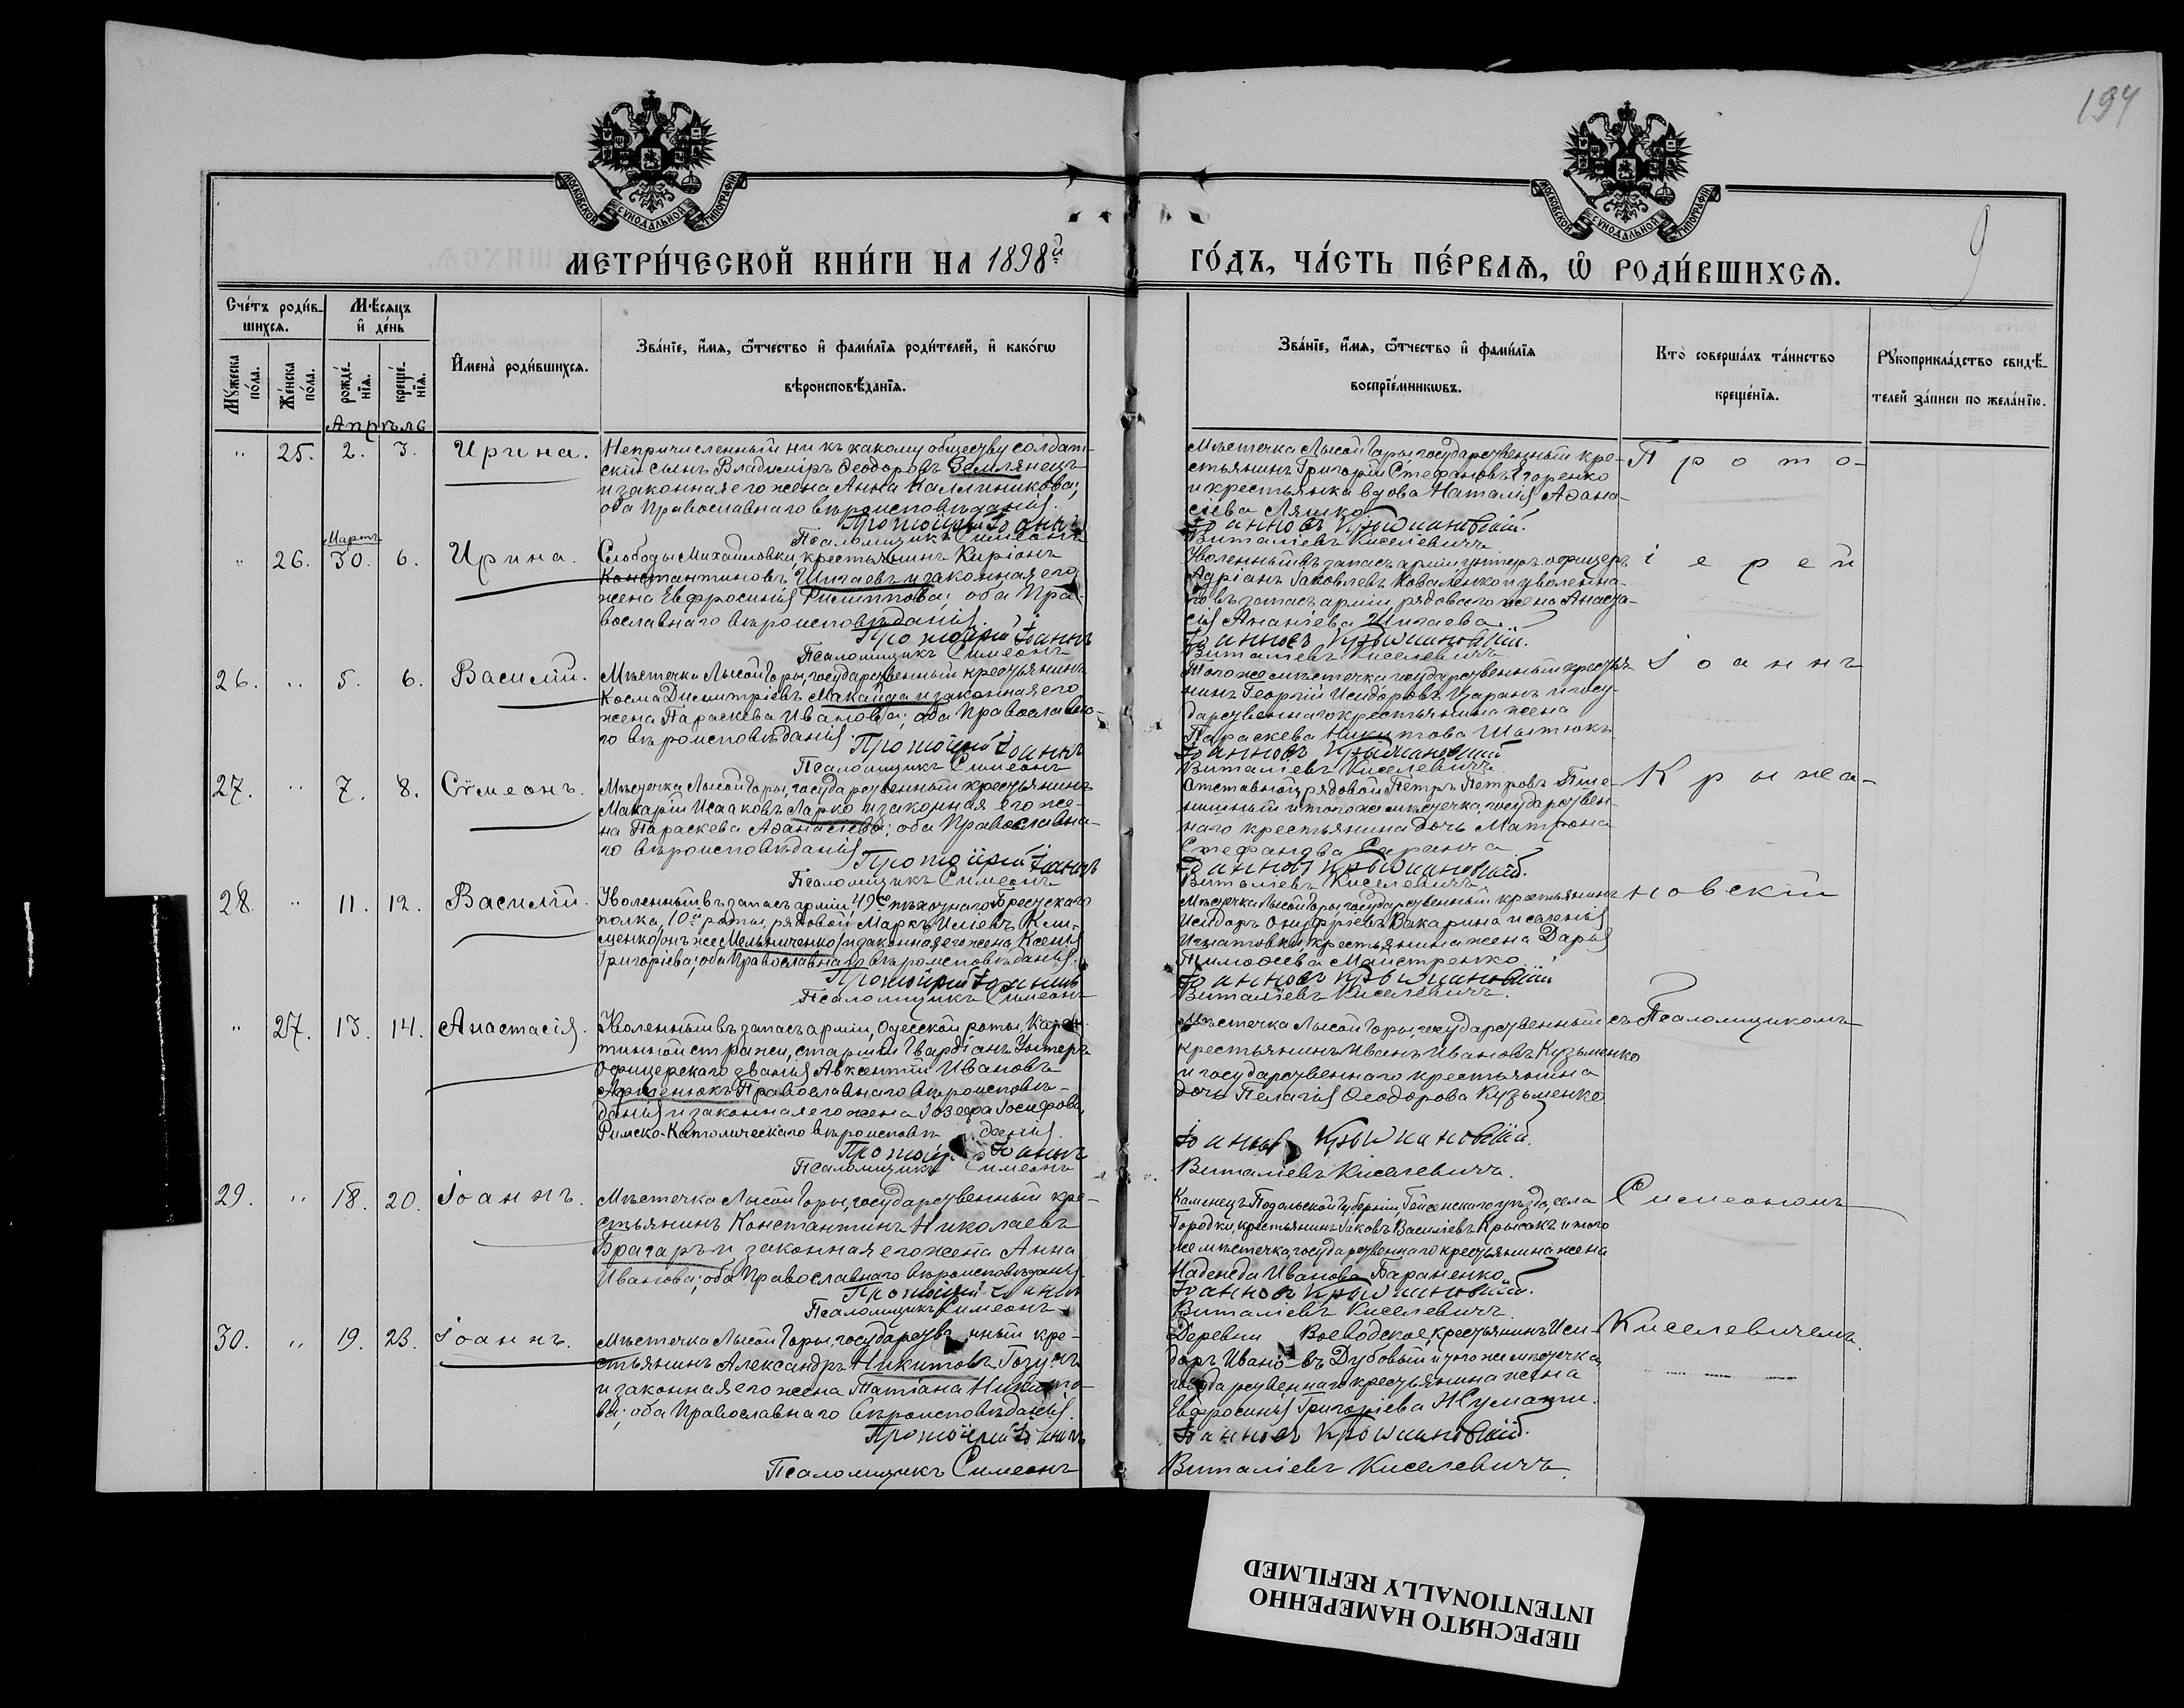 194
9
МОСКОВСКОЙ СУНОДАЛЬНОЙ ТИПОГРАФІИ
МОСКОВСКОЙ СУНОДАЛЬНОЙ ТИПОГРАФІИ
МЕТРИ́ЧЕСКОЙ КНИ́ГИ НА 1898й
ГО́ДЪ, ЧА́СТЬ ПЕ́РВАѦ, Ѡ РОДИ́ВШИХСѦ.
Сче́тъ роди́в-
шихсѧ.
Мѣ́сѧцъ
и де́нь
Мꙋжеска по́ла.
Же́нска по́ла.
рожде́-
нїѧ.
креще́-
нїѧ.
И҆мена̀ роди́вшихсѧ.
Зва́нїе, и҆́мѧ, ѻ҆́тчество и҆ фами́лїѧ роди́телей, и҆ како́гѡ
вѣроисповѣ́данїѧ.
Зва́нїе, и҆́мѧ, ѻ҆́тчество и҆ фами́лїѧ
воспрїе́мникѡвъ.
Кто̀ соверша́лъ та́инство
креще́нїѧ.
Рꙋкоприкла́дство свидѣ́-
телей за́писи по жела́нїю.
Апрѣль
" 25. 2. 3. Ирина.
Непричисленный ни къ какому обществу солдат-
скій сынъ Владиміръ Ѳеодоровъ Землянецъ
и законная его жена Анна Каллиникова;
оба Православнаго вѣроисповѣданія.
Протоіерей Іоаннъ
Псаломщикъ Симеонъ
Мѣстечка Лысой Горы, государственный кре-
стьянинъ Григорій Стефановъ Егоренко
и крестьянка вдова Наталія Аѳана-
сіева Ляшко
Іоанновъ Крыжановскій.
Виталіевъ Киселевичъ
Прото-
Мартъ
" 26. 30. 6. Ирина.
Слободы Михайловки, крестьянинъ Киріонъ
Константиновъ Шигаевъ и законная его
жена Евфросинія Филиппова; оба Пра-
вославнаго вѣроисповѣданія.
Протоіерей Іоаннъ
Псаломщикъ Симеонъ
Уволенный въ запасъ арміи унтеръ офицеръ
Адріанъ Іаковлевъ Коваленко и уволенна-
го въ запасъ арміи, рядоваго жена Анаста-
сія Ананіева Шигаева.
Іоанновъ Крыжановскій.
Виталіевъ Киселевичъ
іерей
26. " 5. 6. Василій.
Мѣстечка Лысой Горы, государственный крестьянинъ
Косма Димитріевъ Макайда и законная его
жена Параскева Иванова; оба Православна-
го вѣроисповѣданія
Протоіерей Іоаннъ
Псаломщикъ Симеонъ
Того же мѣстечка государственный крестья-
нинъ Георгій Исидоровъ Царанъ и госу-
дарственнаго крестьянина жена
Параскева Никитова
Іоанновъ Крыжановскій
Виталіевъ Киселевичъ
Іоаннъ
27. " 7. 8. Сѵмеонъ.
Мѣстечка Лысой Горы, государственный крестьянинъ
Макарій Исааковъ Ларко и законная его же-
на Параскева Аѳанасіева; оба Православна-
го вѣроисповѣданія
Протоіерей Іоаннъ
Псаломщикъ Симеонъ
Отставной рядовой Петръ Петровъ Пше-
ничный и того же мѣстечка, государствен-
наго крестьянина дочь Матрона
Стефанова Саранча
Іоанновъ Крыжановскій.
Виталіевъ Киселевичъ
Крыжа-
28. " 11. 12. Василій.
Уволенный въ запасъ арміи, 49го пѣхотнаго Брестскаго
полка, 10й роты, рядовой Маркъ Иліевъ Кли-
ценко /онъ же Мельниченко/ и законная его жена Ксенія
Григоріева; оба Православнаго вѣроисповѣданія.
Протоіерей Іоаннъ
Псаломщикъ Симеонъ
Мѣстечка Лысой Горы, государственный крестьянинъ
Исидоръ Онуфріевъ Вакарина и селенія
Игнатовки, крестьянина жена Дарія
Тимоѳеева Майстренко
Іоанновъ Крыжановскій
Виталіевъ Киселевичъ.
новскій
" 27. 13. 14. Анастасія.
Уволенный въ запасъ арміи, Одесской роты, Каран-
тинной стражи, старшій Гвардіанъ Унтеръ
офицерскаго званія Авксентій Ивановъ
Православнаго вѣроисповѣ-
данія и законная его жена Іозефа Іосифова,
Римско-Католическаго вѣроисповѣданія.
Протоіерей Іоаннъ
Псаломщикъ Симеонъ
Мѣстечка Лысой Горы, государственный
крестьянинъ Иванъ Ивановъ Кузьменко
и государственнаго крестьянина
дочь Пелагія Ѳеодорова Кузьменко
Іоанновъ Крыжановскій.
Виталіевъ Киселевичъ.
съ Псаломщикомъ
29. " 18. 20. Іоаннъ.
Мѣстечка Лысой Горы, государственный кре-
стьянинъ Константинъ Николаевъ
Брагаръ и законная его жена Анна
Иванова; оба Православнаго вѣроисповѣданія.
Протоіерей Іоаннъ
Псаломщикъ Симеонъ
Каменецъ Подольской Губерніи, Гайсенскаго уѣзда, села
Городки, крестьянинъ Іаковъ Василіевъ Крысакъ и того
же мѣстечка, государственнаго крестьянина жена
Надежда Иванова Бараненко
Іоанновъ Крыжановскій.
Виталіевъ Киселевичъ
Симеономъ
30. " 19. 23. Іоаннъ.
Мѣстечка Лысой Горы, государственный кре-
стьянинъ Александръ Никитовъ
и законная его жена Татіана Никито-
ва; оба Православнаго вѣроисповѣданія.
Протоіерей Іоаннъ
Псаломщикъ Симеонъ
Деревни Воеводское, крестьянинъ Иси-
доръ Ивано-въ Дубовый и того же мѣстечка
государственнаго крестьянина жена
Евфросинія Григоріева
Іоанновъ Крыжановскій.
Виталіевъ Киселевичъ.
Киселевичемъ.
ПЕРЕСНЯТО НАМЕРЕННО
INTENTIONALLY REFILMED